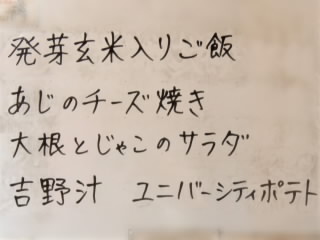 発芽玄米入りご飯
あじのチーズ焼き
大根とじゃこのサラダ
吉野汁　ユニバーシティポテト